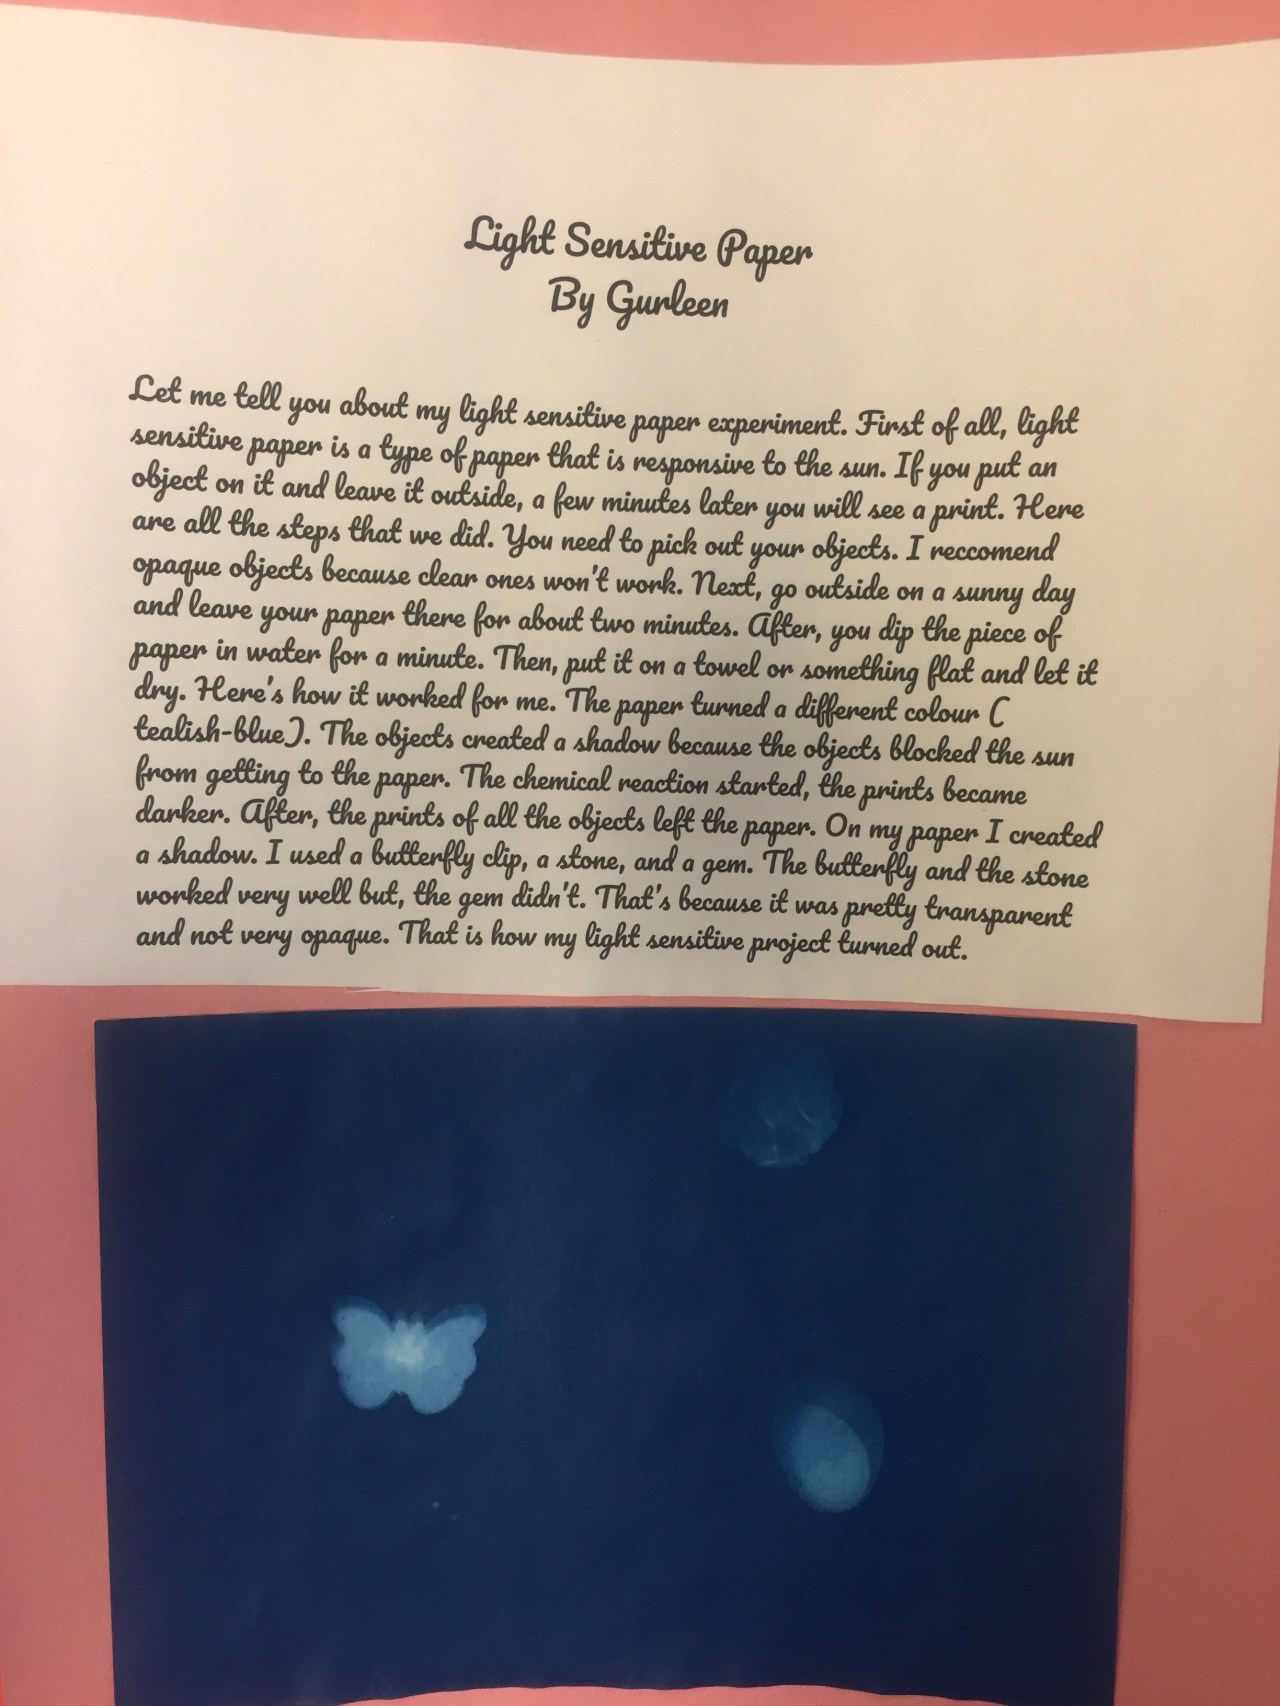 Light Sensitive Paper
By Gurleen
Let me tell you about my light sensitive paper experiment. First of all, light
sensitive paper is a type of paper that is responsive to the sun. If you put an
object on it and leave it outside, a few minutes later you will see a print. Here
are all the steps that we did. You need to pick out your objects. I reccomend
opaque objects because clear ones won't work. Next, go outside on a sunny day
and leave your paper there for about two minutes. After, you dip the piece of
paper in water for a minute. Then, put it on a towel or something flat and let it
dry. Here's how it worked for me. The paper turned a different colour (
tealish-blue). The objects created a shadow because the objects blocked the sun
from getting to the paper. The chemical reaction started, the prints became
darker. After, the prints of all the objects left the paper. On my paper I created
a shadow. I used a butterfly clip, a stone, and a gem. The butterfly and the stone
worked very well but, the gem didn't. That's because it was pretty transparent
and not very opaque. That is how my light sensitive project turned out.